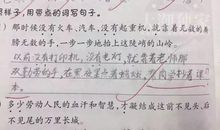 照样子,用带点的词写句子。
那时候没有火车、汽车,没有起重机,就靠着无数的
膀无数的手,一步一步地抬上这陡峭的山岭。
以前没有打印机,没有电灯,就靠着老师那
双勤劳的手,在黑夜里点着蜡烛,
本。
多少劳动人民的血汗和智慧,才凝结成这前不见头、
不见尾的万里长城。